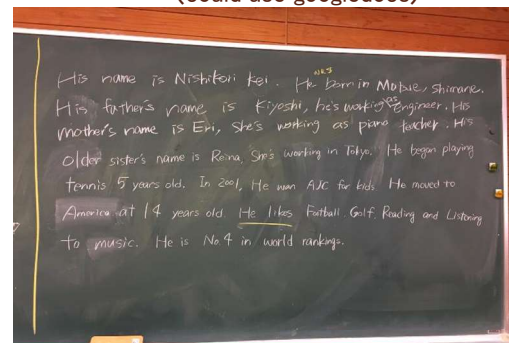 (could use googledocs)
His name is Nishikori Kei. He was born in Matsue, Shimane.
His father's name is Kiyoshi, he's working as engineer. His
mother's name is Eri, She's working as piano teacher. His
older sister's name is Reina, She's working in Tokyo. He began playing
tennis 5 years old. In 2001, He won AJC for kids He moved to
America at 14 years old. He likes Football. Golf. Reading and Listening
to music. He is No.4 in world rankings.